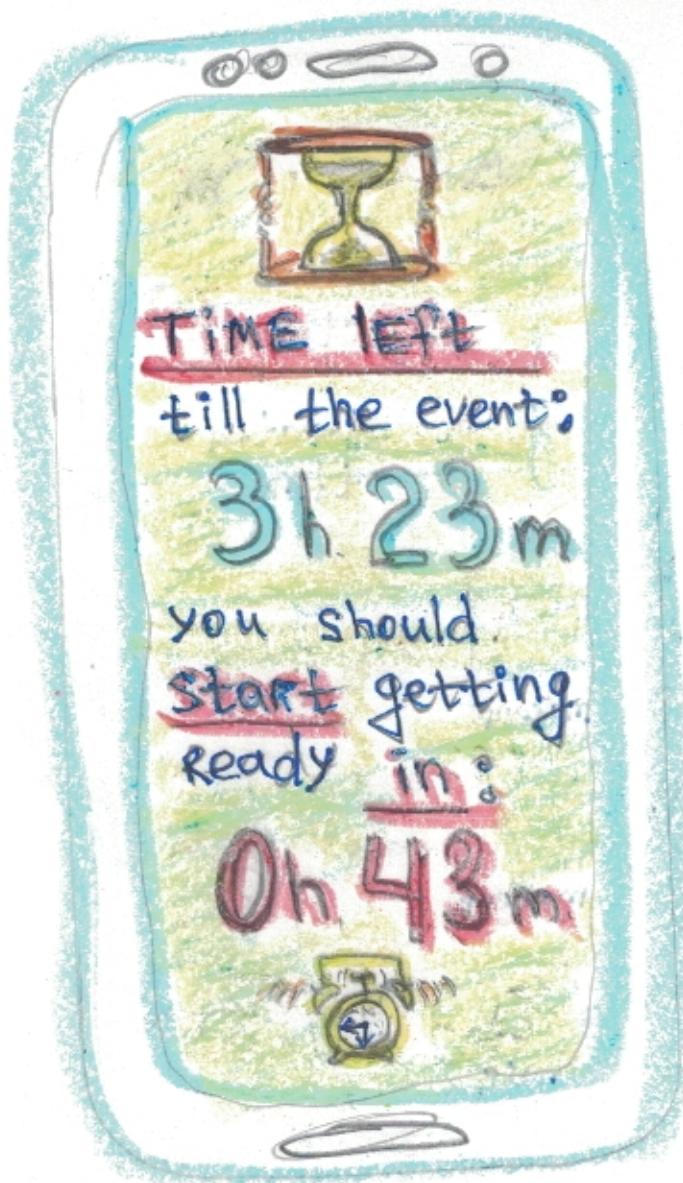 TiME lEft
till the event:
3h 23m
you should
staRt getting
Ready in:
0h 43m